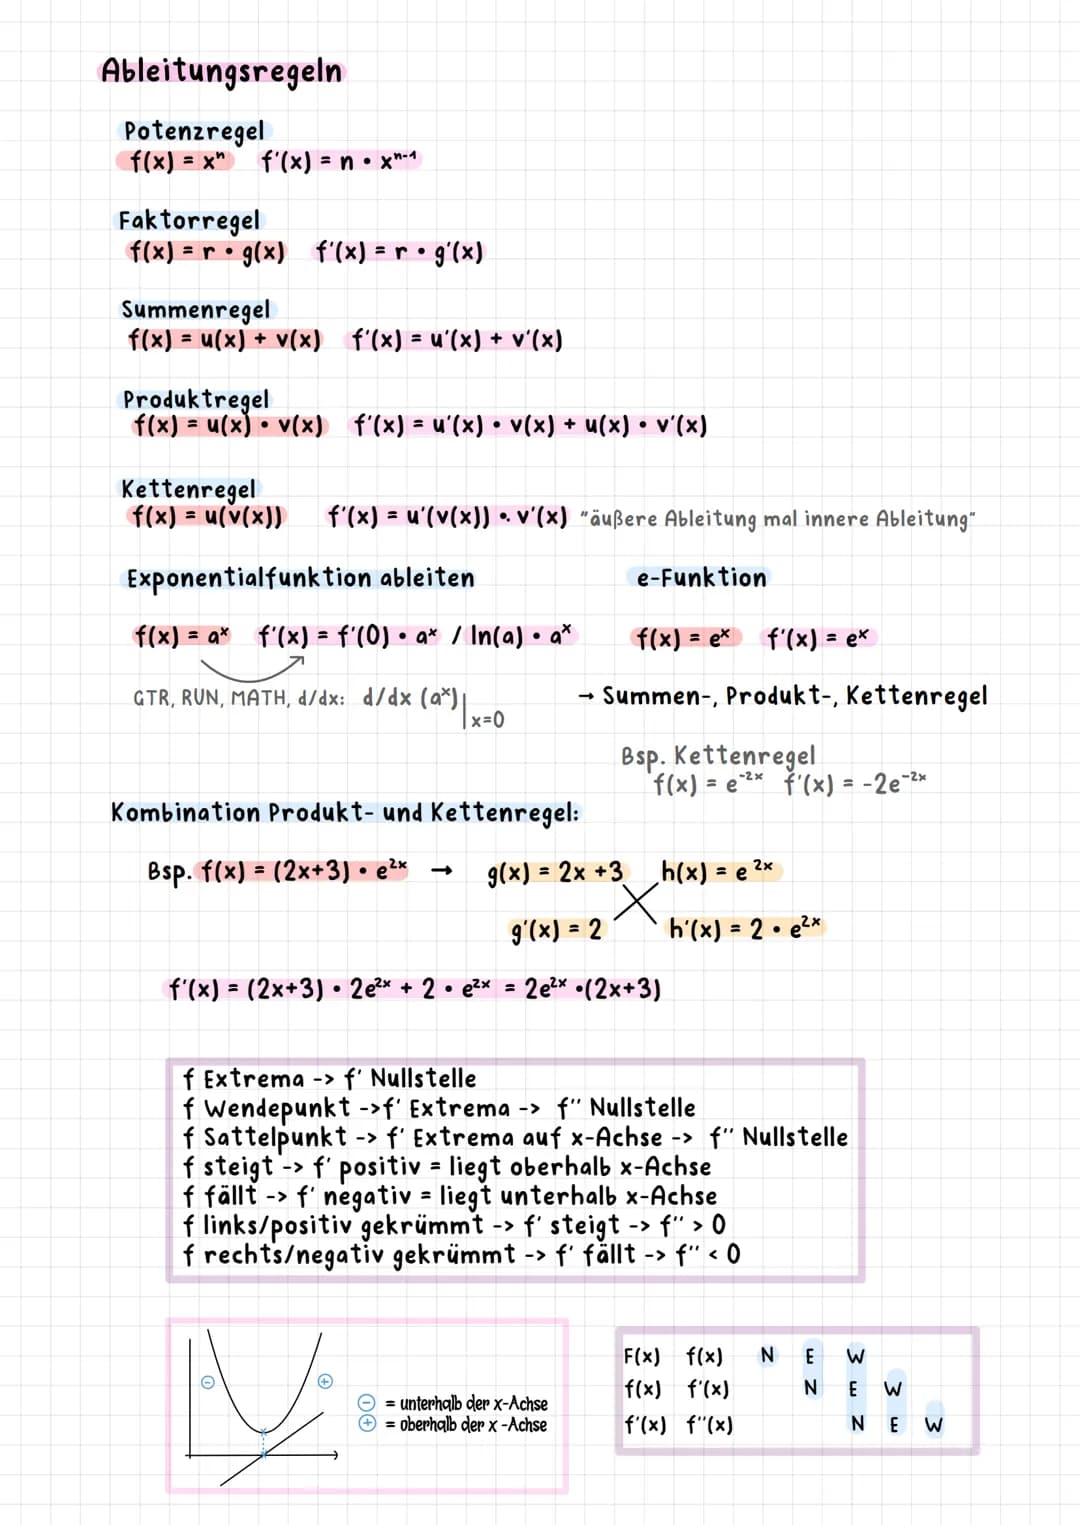 Ableitungsregeln
Potenzregel
f(x) = xⁿ f'(x) = n • xⁿ⁻¹
Faktorregel
f(x) = r • g(x) f'(x) = r • g'(x)
Summenregel
f(x) = u(x) + v(x) f'(x) = u'(x) + v'(x)
Produktregel
f(x) = u(x) • v(x) f'(x) = u'(x) • v(x) + u(x) • v'(x)
Kettenregel
f(x) = u(v(x)) f'(x) = u'(v(x)) • v'(x) "äußere Ableitung mal innere Ableitung"
Exponentialfunktion ableiten e-Funktion
f(x) = aˣ f'(x) = f'(0) • aˣ / ln(a) • aˣ f(x) = eˣ f'(x) = eˣ
GTR, RUN, MATH, d/dx: d/dx (aˣ)|x=0 → Summen-, Produkt-, Kettenregel
Bsp. Kettenregel
f(x) = e⁻²ˣ f'(x) = -2e⁻²ˣ
Kombination Produkt- und Kettenregel:
Bsp. f(x) = (2x+3) • e²ˣ → g(x) = 2x +3 h(x) = e ²ˣ
g'(x) = 2 h'(x) = 2 • e²ˣ
f'(x) = (2x+3) • 2e²ˣ + 2 • e²ˣ = 2e²ˣ •(2x+3)
f Extrema -> f' Nullstelle
f Wendepunkt ->f' Extrema -> f'' Nullstelle
f Sattelpunkt -> f' Extrema auf x-Achse -> f'' Nullstelle
f steigt -> f' positiv = liegt oberhalb x-Achse
f fällt -> f' negativ = liegt unterhalb x-Achse
f links/positiv gekrümmt -> f' steigt -> f'' > 0
f rechts/negativ gekrümmt -> f' fällt -> f'' < 0
⊖ ⊕
⊖ = unterhalb der x-Achse
⊕ = oberhalb der x-Achse
F(x) f(x) N E W
f(x) f'(x) N E W
f'(x) f''(x) N E W